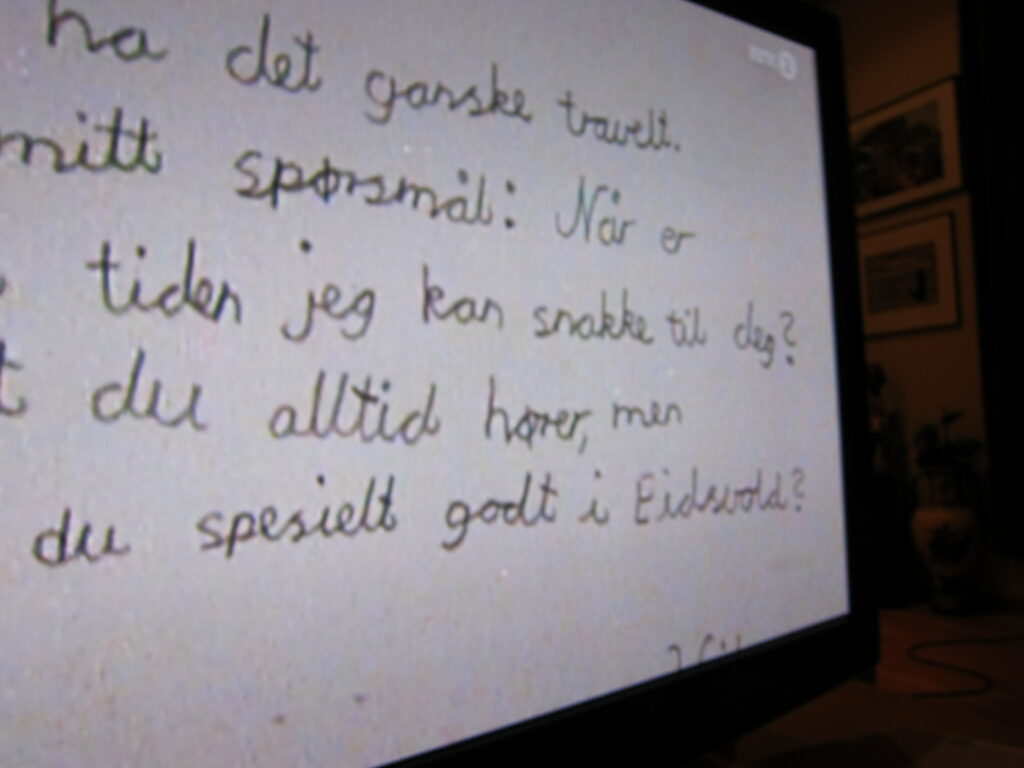 ha det ganske travelt.
mitt spørsmål: Når er
tiden jeg kan snakke til deg?
t du alltid hører, men
du spesielt godt i Eidsvold?